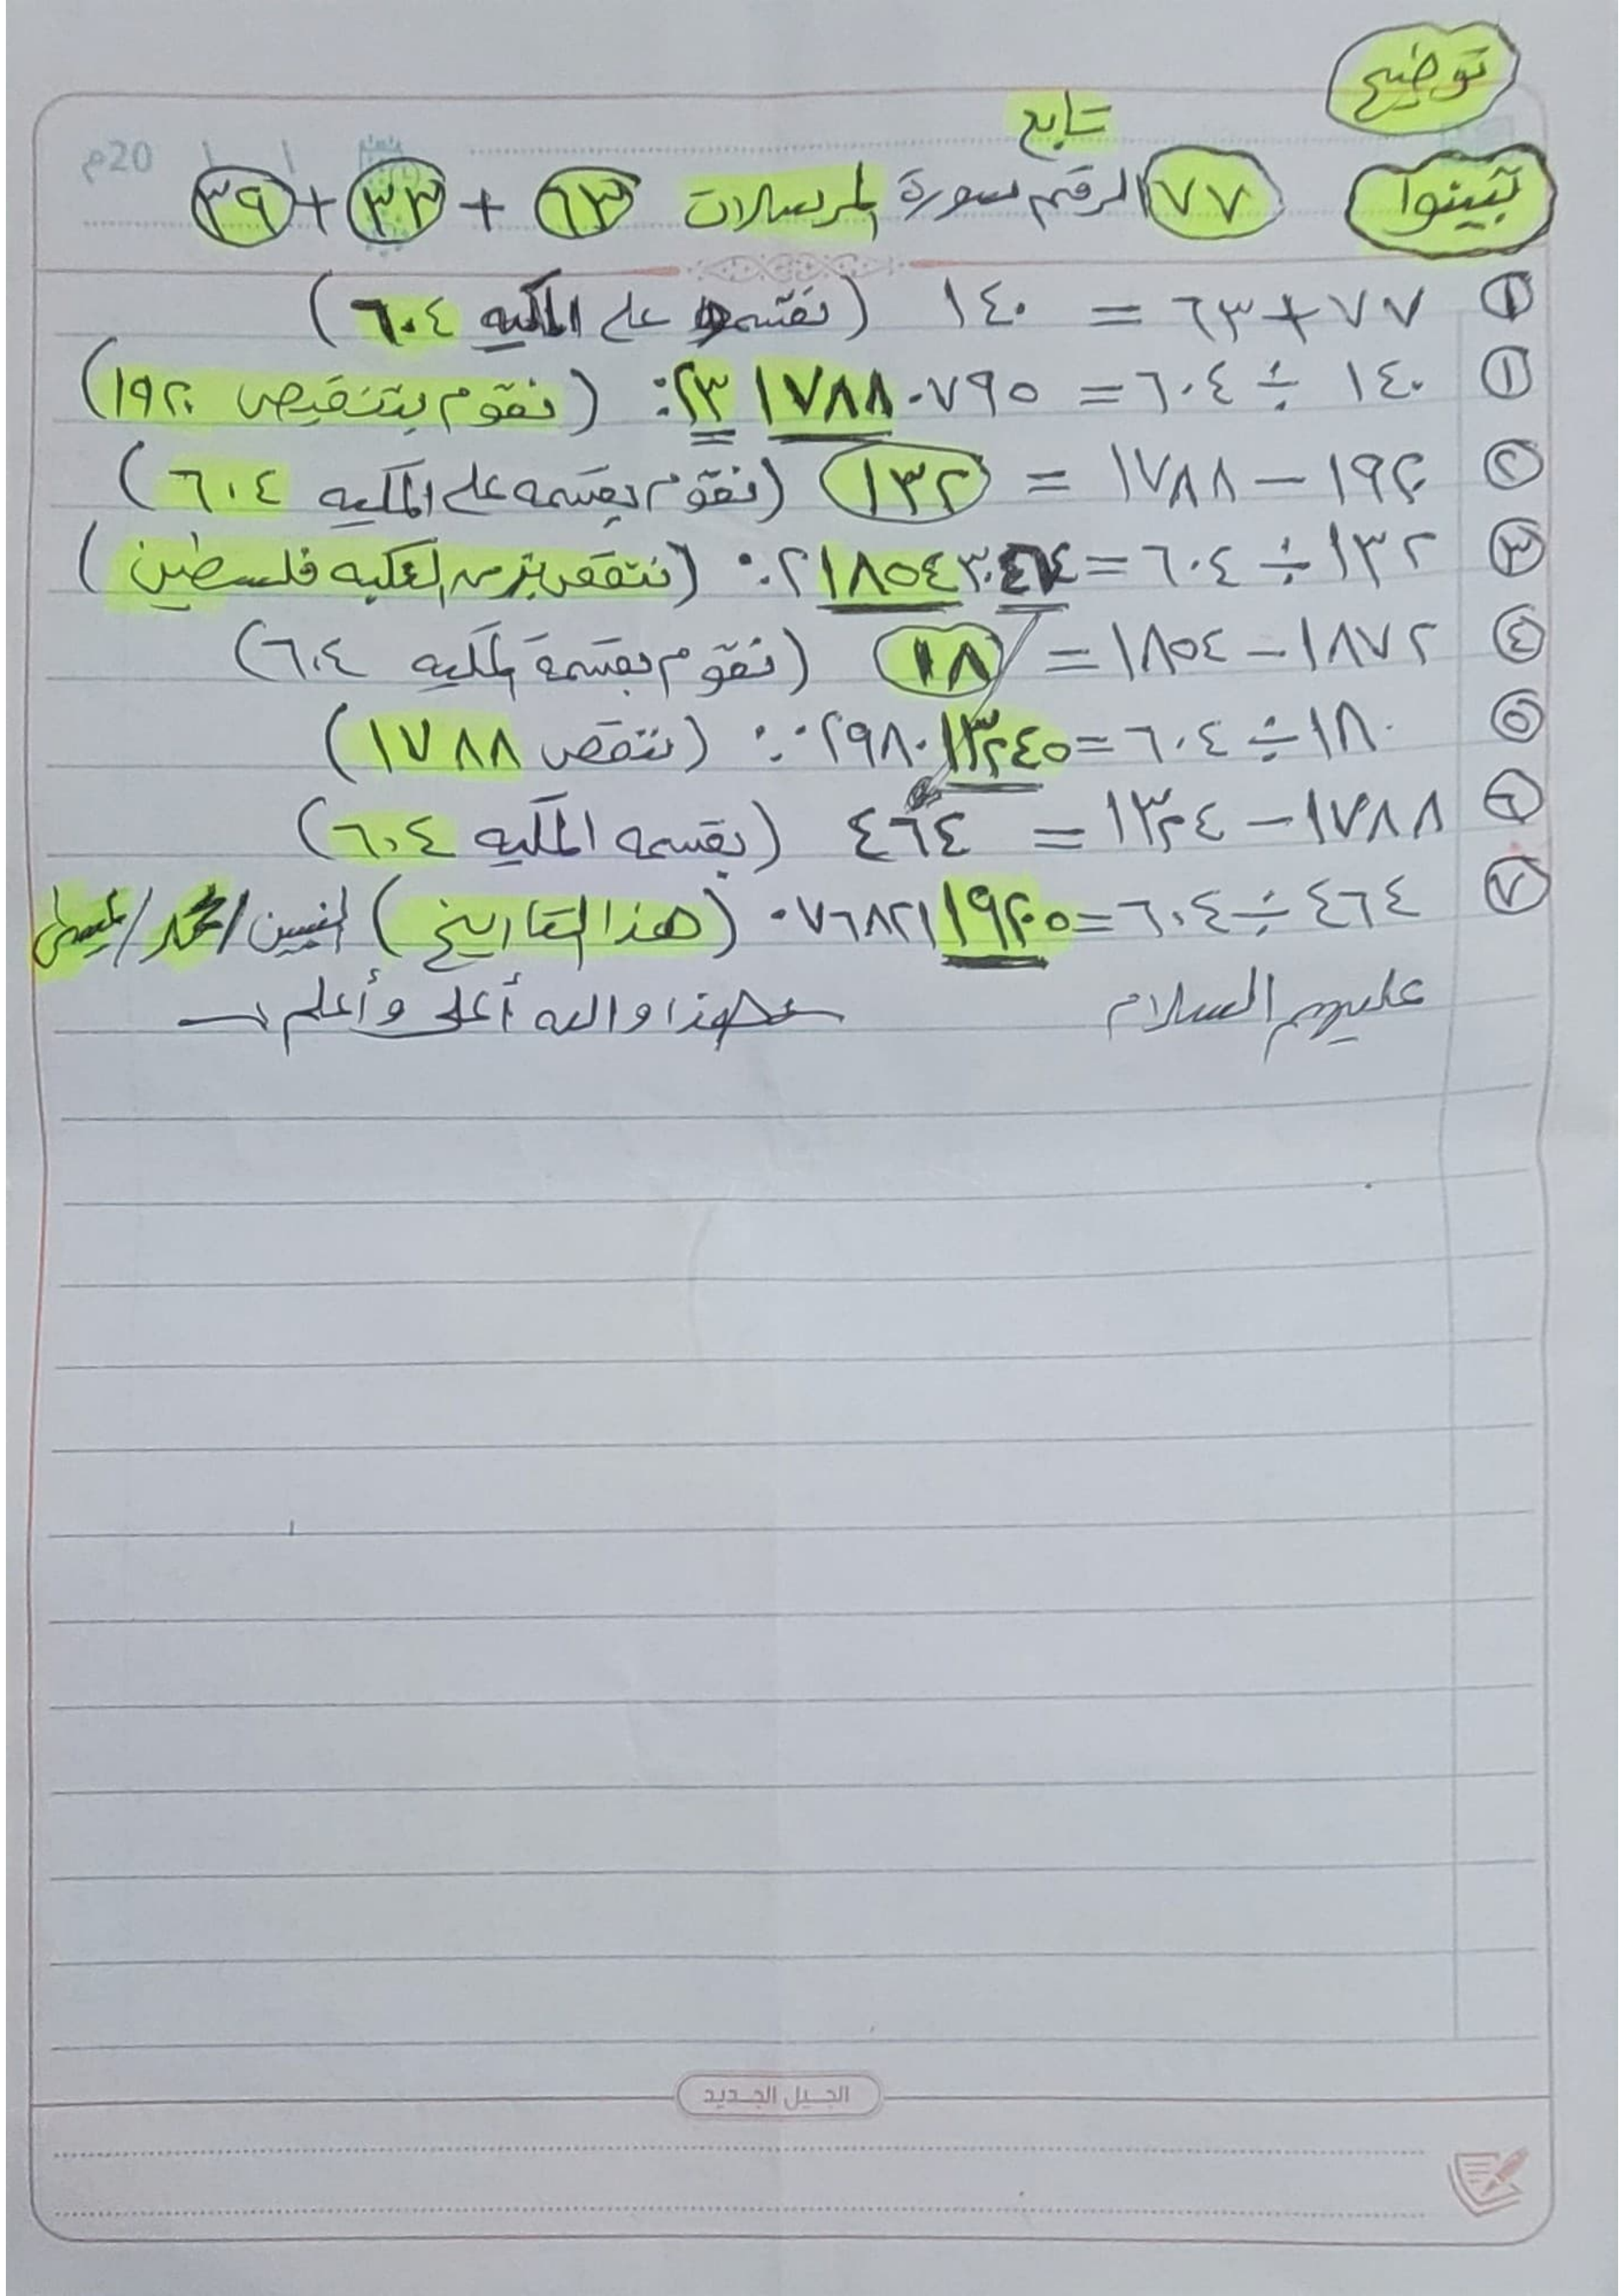 توضيح
تابع
تبينوا ٧٧ الرقم سورة المرسلات ٦٣ + ٣٣ + ٣٩
20م / /
① ٧٧ + ٦٣ = ١٤٠ (نقسمه على المكيه ٦٠٤)
① ١٤٠ ÷ ٦٠٤ = ٠.٢٣١٧٨٨٠٧٩٥ (نقوم بتنقيص ١٩٢٠)
② ١٩٢٠ − ١٧٨٨ = ١٣٢ (نقوم بقسمه على المكيه ٦٠٤)
③ ١٣٢ ÷ ٦٠٤ = ٠.٢١٨٥٤٣٠٤٦٤ (ننقص من فلسطين)
④ ١٨٧٢ − ١٨٥٤ = ١٨ (نقوم بقسمة المكيه ٦٠٤)
⑤ ١٨٠ ÷ ٦٠٤ = ٠.٢٩٨٠١٣٢٤٥ (ننقص ١٧٨٨)
⑥ ١٧٨٨ − ١٣٢٤ = ٤٦٤ (بقسمه المكيه ٦٠٤)
⑦ ٤٦٤ ÷ ٦٠٤ = ٠٧٦٨٢١١٩٢٠٥ (هذا التاريخ) / محمد / عيسى
عليهم السلام هذا والله أعلى وأعلم
الجيل الجديد